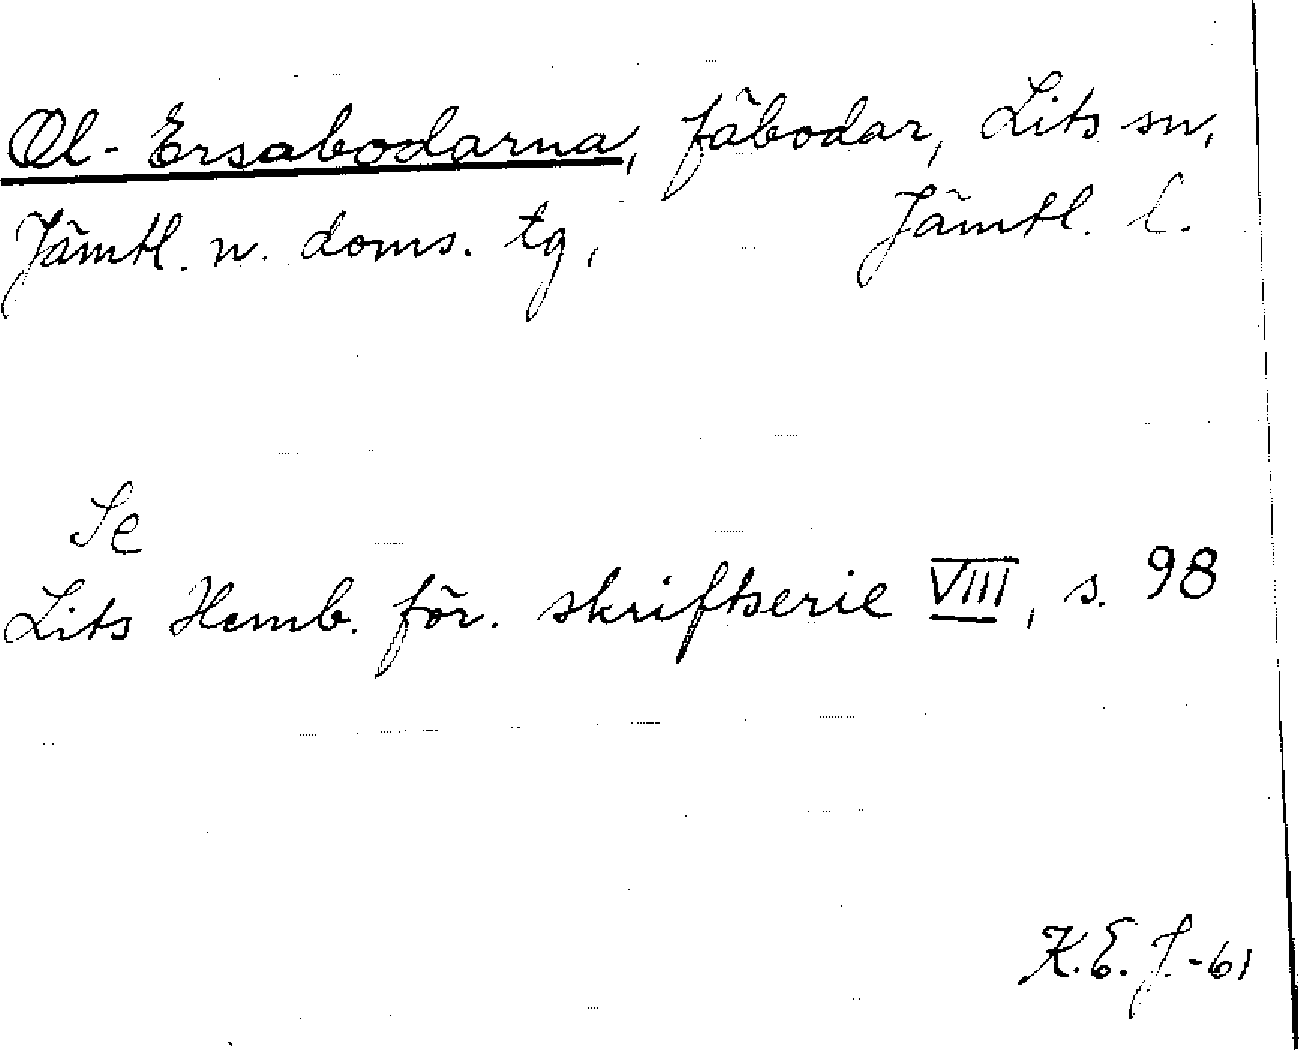 Ol-Ersabodarna, fäbodar, Lits sn,
Jämtl. n. doms. tg, Jämtl. l.
Se
Lits Hemb. för. skriftserie VIII, s. 98
K.E.J.-61